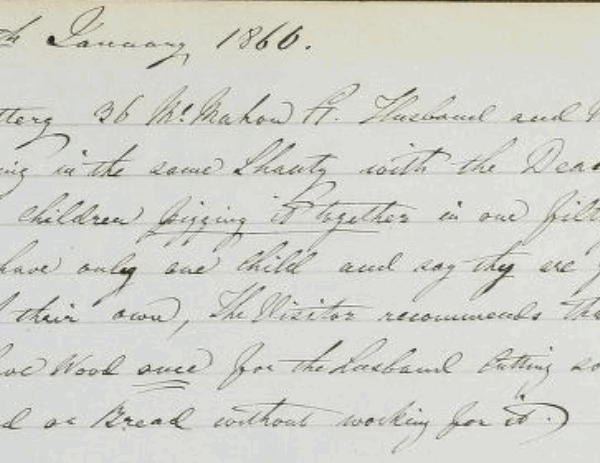 th January 1866.
ttery 36 McMahon St. Husband and
ing in the same Shanty with the Dea
children pigging it together in one filt
have only one child and say they are
their own, The Visitor recommends tha
ve Wood once for the Husband Cutting so
d or Bread without working for it.)